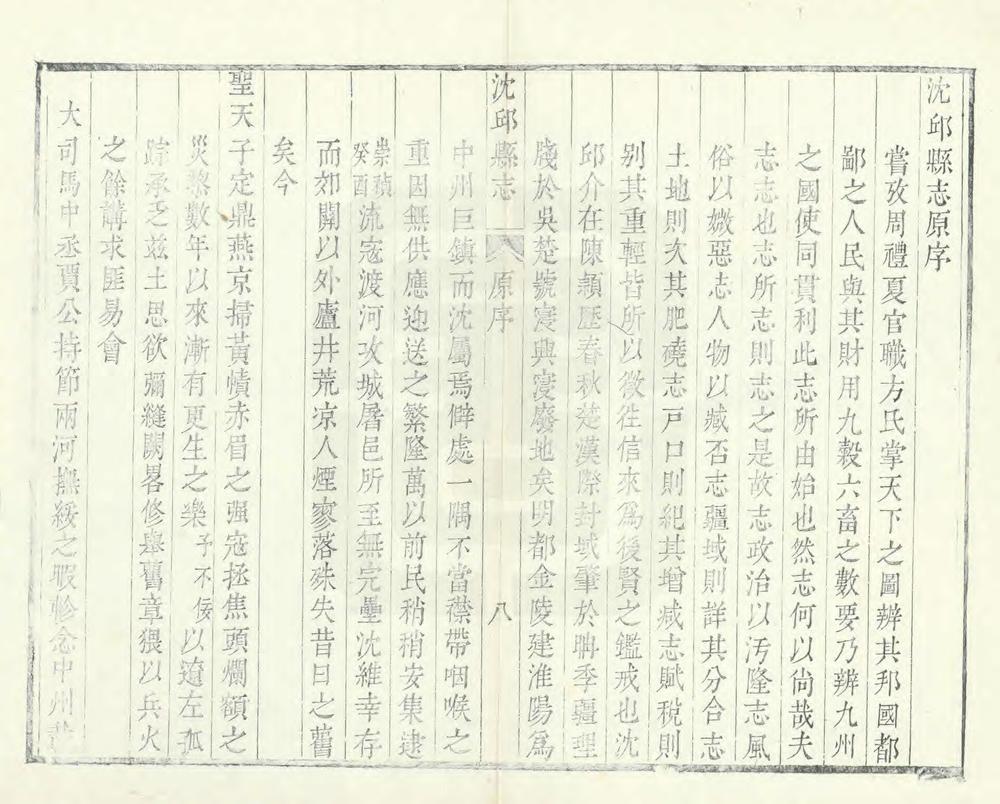 沈邱縣志原序
嘗攷周禮夏官職方氏掌天下之圖辨其邦國都
鄙之人民與其財用九穀六畜之數要乃辨九州
之國使同貫利此志所由始也然志何以尙哉夫
志志也志所志則志之是故志政治以汚隆志風
俗以媺惡志人物以臧否志疆域則詳其分合志
土地則次其肥磽志戸口則紀其增减志賦稅則
别其重輕皆所以徵徃信來爲後賢之鑑戒也沈
邱介在陳頴歷春秋楚漢際封域肇於聃季疆理
牋於吳楚號寖興寖廢地矣明都金陵建淮陽爲
沈邱縣志 原序 八
中州巨鎮而沈屬焉僻處一隅不當襟帶咽喉之
重因無供應迎送之繁隆萬以前民稍稍安集逮
崇禎癸酉流寇渡河攻城屠邑所至無完壘沈維幸存
而郊關以外廬井荒凉人煙寥落殊失昔日之舊
矣今
聖天子定鼎燕京掃黃幘赤眉之强寇拯焦頭爛額之
災黎數年以來漸有更生之樂予不佞以遼左孤
踪承乏兹土思欲彌縫闕畧修舉舊章猥以兵火
之餘講求匪易會
大司馬中丞賈公持節兩河撫綏之暇軫念中州